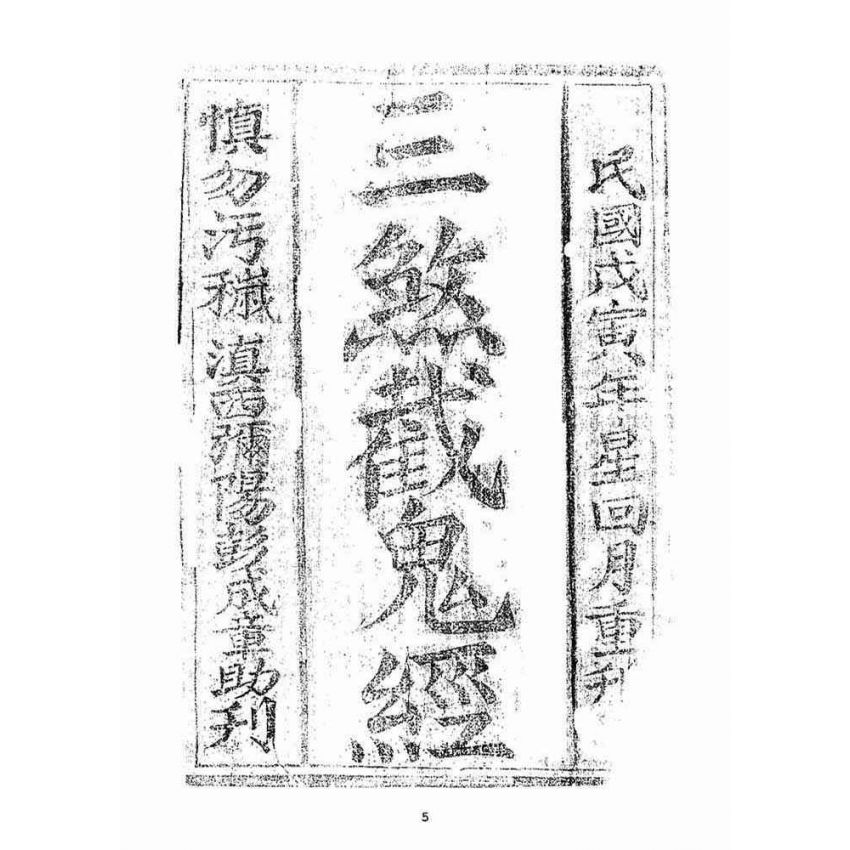 民國戊寅年星回月重刊
三煞截鬼經
慎勿汚穢 滇西彌陽彭成章助刊
5